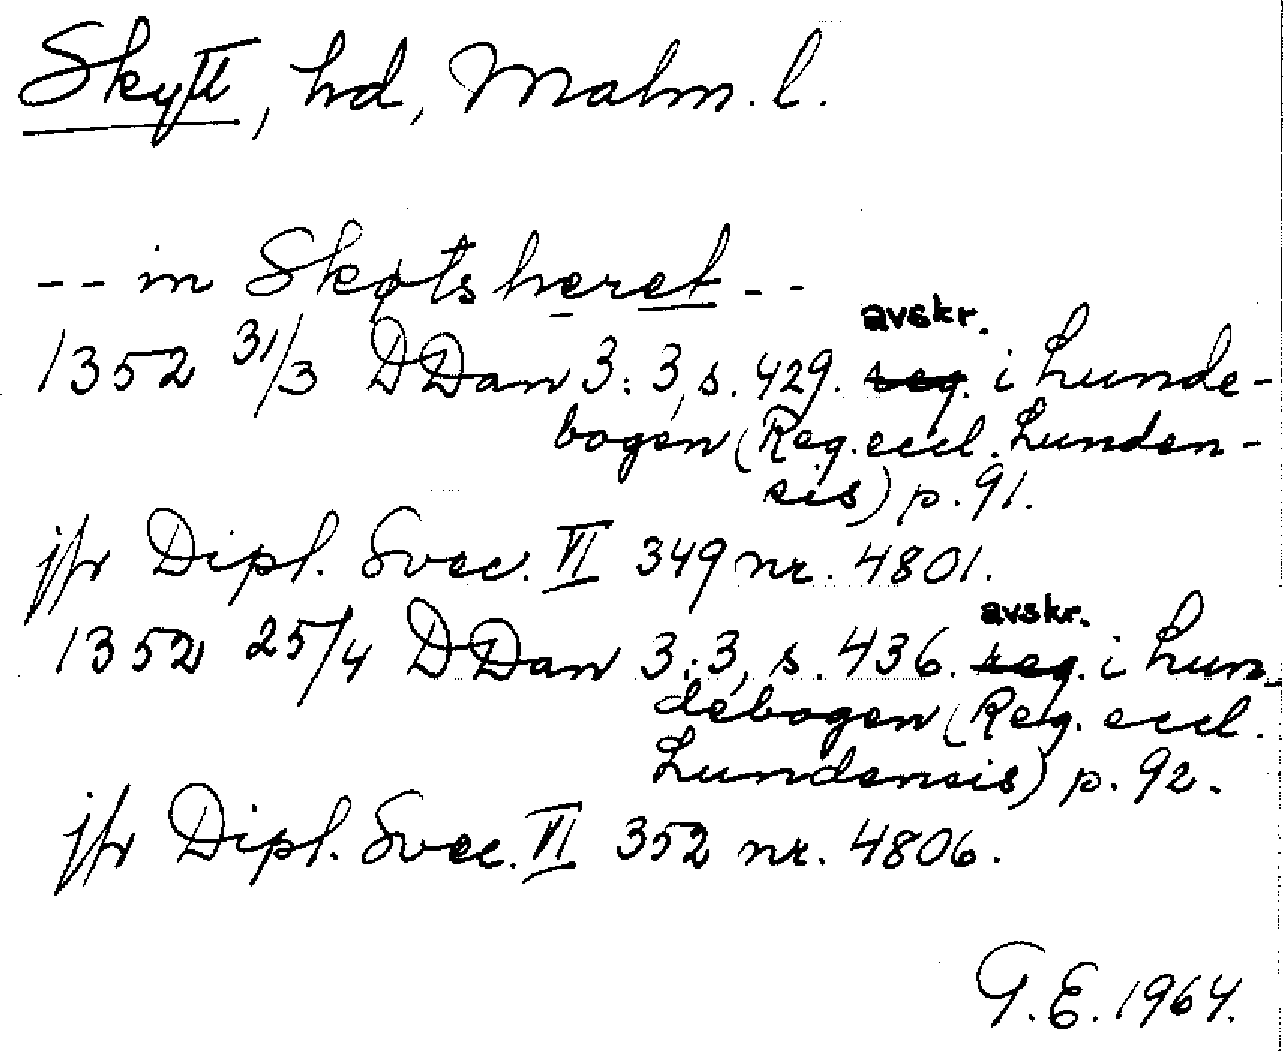 Skytt, hd, Malm. l.
-- in Skøtsheret --
avskr.
1352 31/3 DDan 3:3, s. 429. reg. i Lunde-
bogen (Reg. eccl. Lunden-
sis) p. 91.
jfr Dipl. Svec. VI 349 nr. 4801.
avskr.
1352 25/4 DDan 3:3, s. 436. reg. i Lun-
debogen (Reg. eccl.
Lundensis) p. 92.
jfr Dipl. Svec. VI 352 nr. 4806.
G.E. 1964.